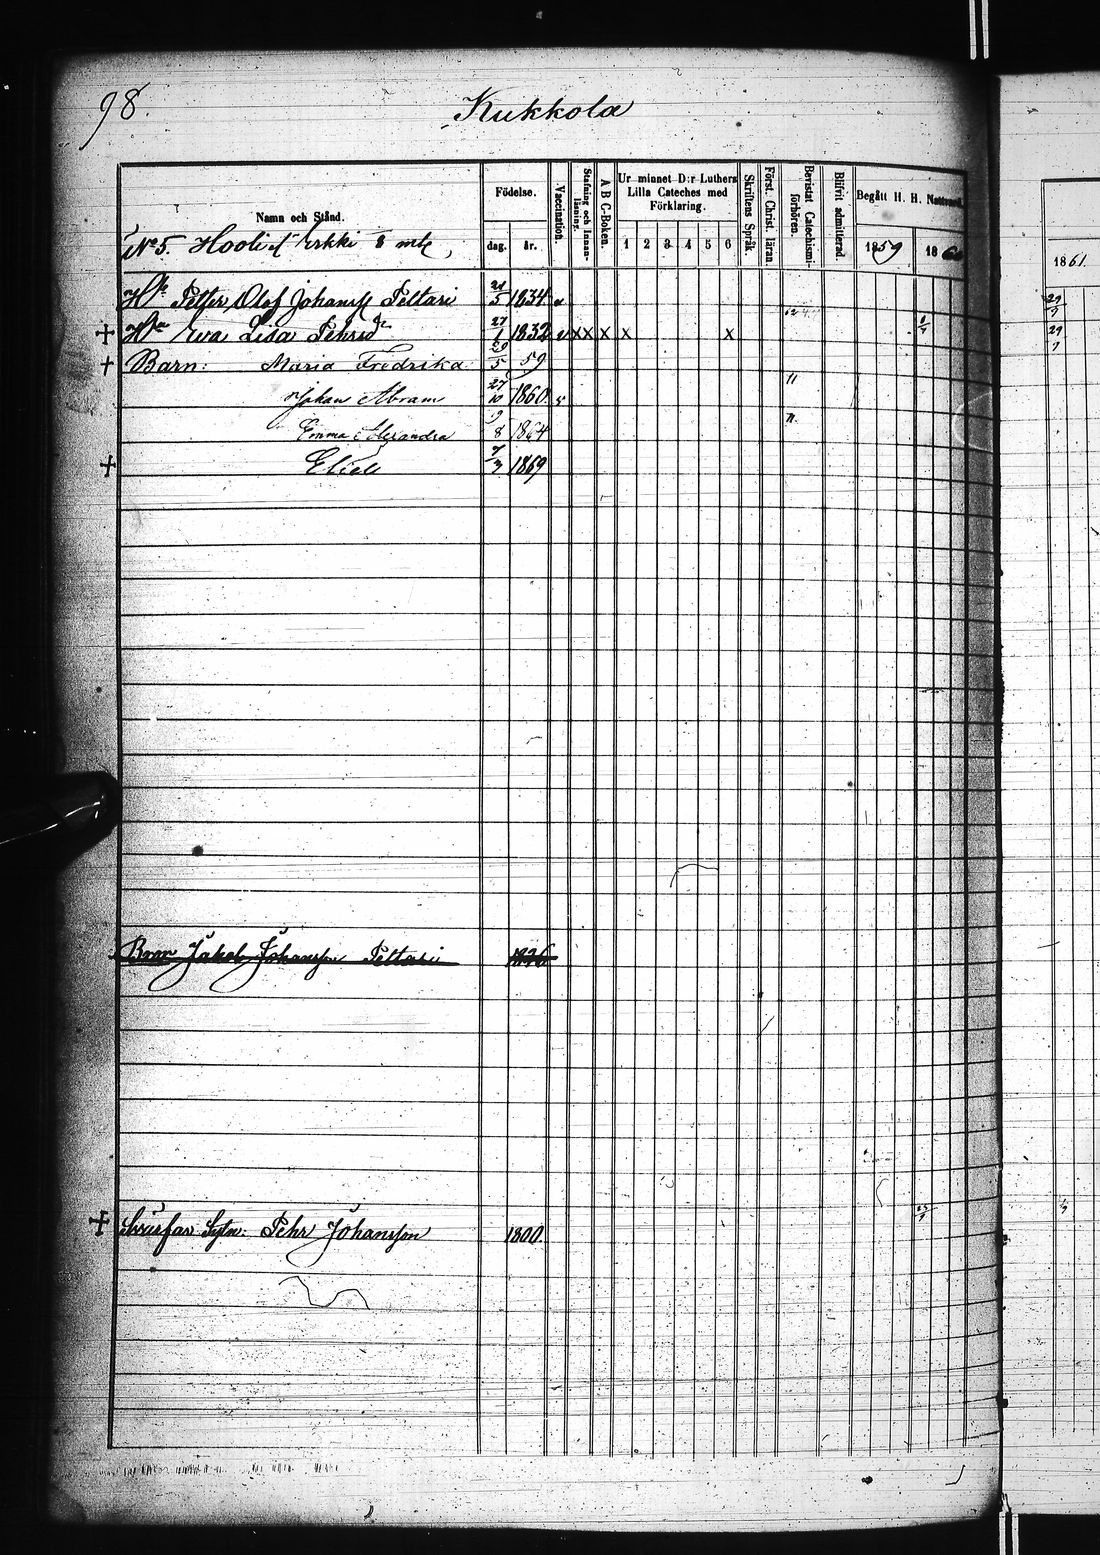 98.
Kukkola
Namn och Stånd.
Födelse.
dag. år.
Vaccination.
Stafning och Innan-läsning.
A B C-Boken.
Ur minnet D:r Luthers
Lilla Cateches med
Förklaring.
1 2 3 4 5 6
Skriftens Språk.
Först. Christ. läran.
Bevistat Catechismi-förhören.
Blifvit admitterad
Begått H. H. Nattvard.
1859 1860
1861.
No 5. Hooli Erkki mtl
Petter Olof Johansson Peltari 21/5 1834 v 29/3
+ Eva Lisa Pehrsdr 27/1 1832 v X X X X X 29
+ Barn: Maria Fredrika 29/5 59
Johan Abram 27/10 1860 v 11
Emma Alexandra 9/8 1864 11
+ Eliel 7/3 1869
Bror Jakob Johansson Peltari 1836
+ Svärfar Sytn: Pehr Johansson 1800